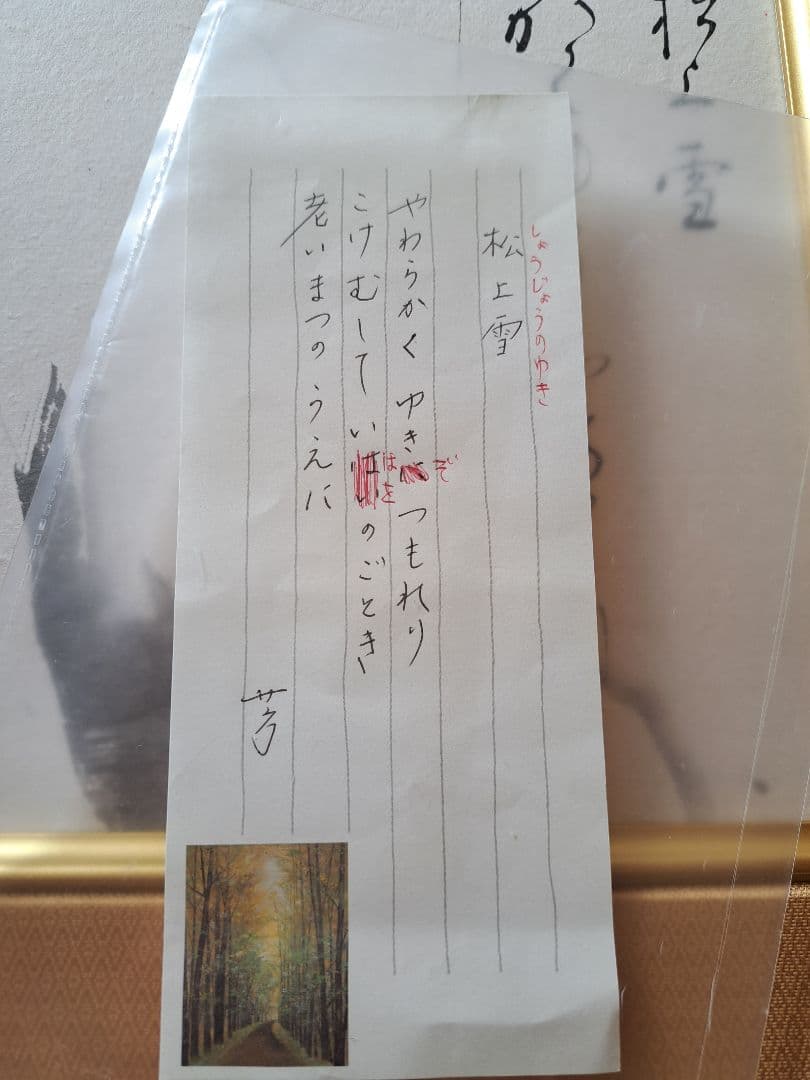 雪
しょうじょうのゆき
松上雪
やわらかく ゆきぞつもれり
こけむして いはをのごとき
老いまつのうえに
芳